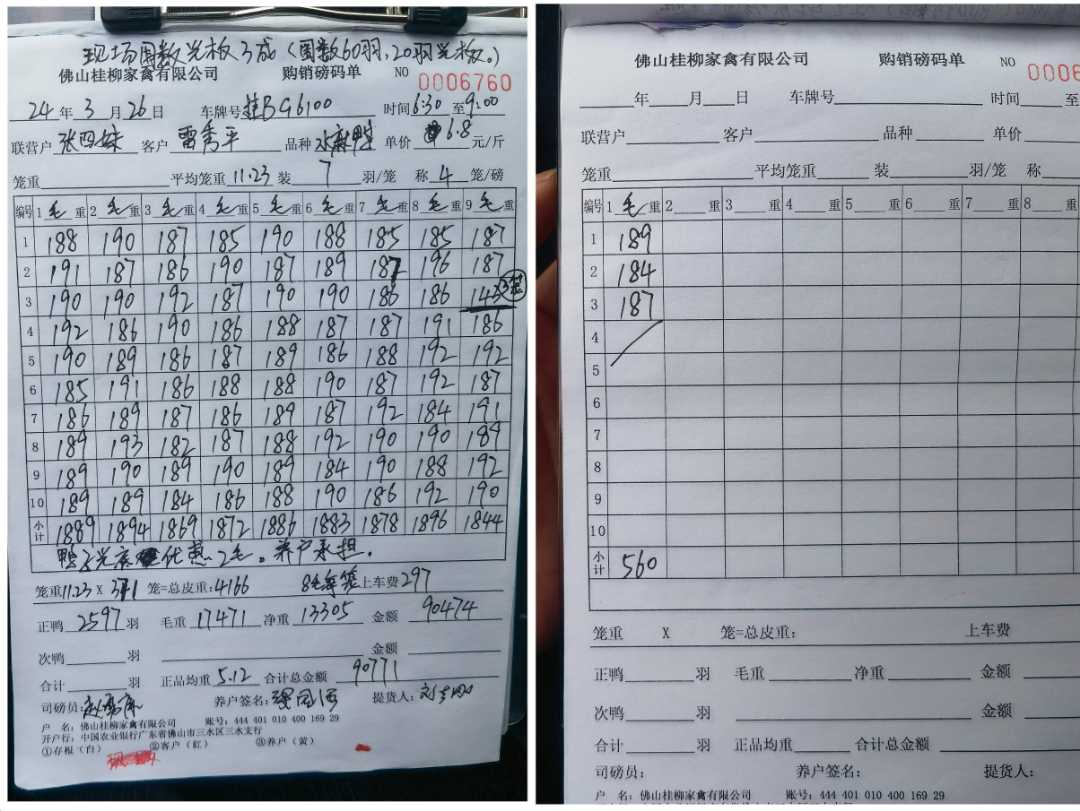 现场国数光板3成（国数60羽,20羽光板。）
佛山桂柳家禽有限公司 购销磅码单 NO 0006760
24年3月26日 车牌号桂BG6100 时间6:30至9:00
联营户张四妹 客户雷秀平 品种 单价6.8元/斤
笼重 平均笼重11.23装7羽/笼 称4笼/磅
编号 1毛重 2毛重 3毛重 4毛重 5毛重 6毛重 7毛重 8毛重 9毛重
1 188 190 187 185 190 188 185 185 187
2 191 187 186 190 187 189 187 196 187
3 190 190 192 187 190 190 186 186 143 3笼
4 192 186 190 186 188 187 187 191 186
5 190 189 186 187 189 186 188 192 192
6 185 191 186 188 188 190 187 192 187
7 186 189 187 186 189 187 192 184 191
8 189 193 182 187 188 192 190 190 189
9 189 190 189 190 189 184 190 188 192
10 189 189 184 186 188 190 186 192 190
小计 1889 1894 1869 1872 1886 1883 1878 1896 1844
鸭 优惠 2毛。养户承担.
笼重11.23X371笼=总皮重:4166 8毛 上车费297
正鸭2597羽 毛重17471净重13305 金额90474
次鸭 羽 金额
合计 羽 正品均重5.12 合计总金额90771
司磅员: 养户签名: 提货人:
户 名: 佛山桂柳家禽有限公司 账号: 444 401 010 400 169 29
开户行: 中国农业银行广东省佛山市三水区三水支行
①存根（白） ②客户（红） ③养户（黄）
佛山桂柳家禽有限公司 购销磅码单 NO 0006
年 月 日 车牌号 时间 至
联营户 客户 品种 单价
笼重 平均笼重 装 羽/笼 称
编号 1毛重 2 重 3 重 4 重 5 重 6 重 7 重 8 重
1 189
2 184
3 187
4
5
6
7
8
9
10
小计 560
笼重 X 笼=总皮重: 上车费
正鸭 羽 毛重 净重 金额
次鸭 羽 金额
合计 羽 正品均重 合计总金额
司磅员: 养户签名: 提货人:
户 名: 佛山桂柳家禽有限公司 账号: 444 401 010 400 169 29